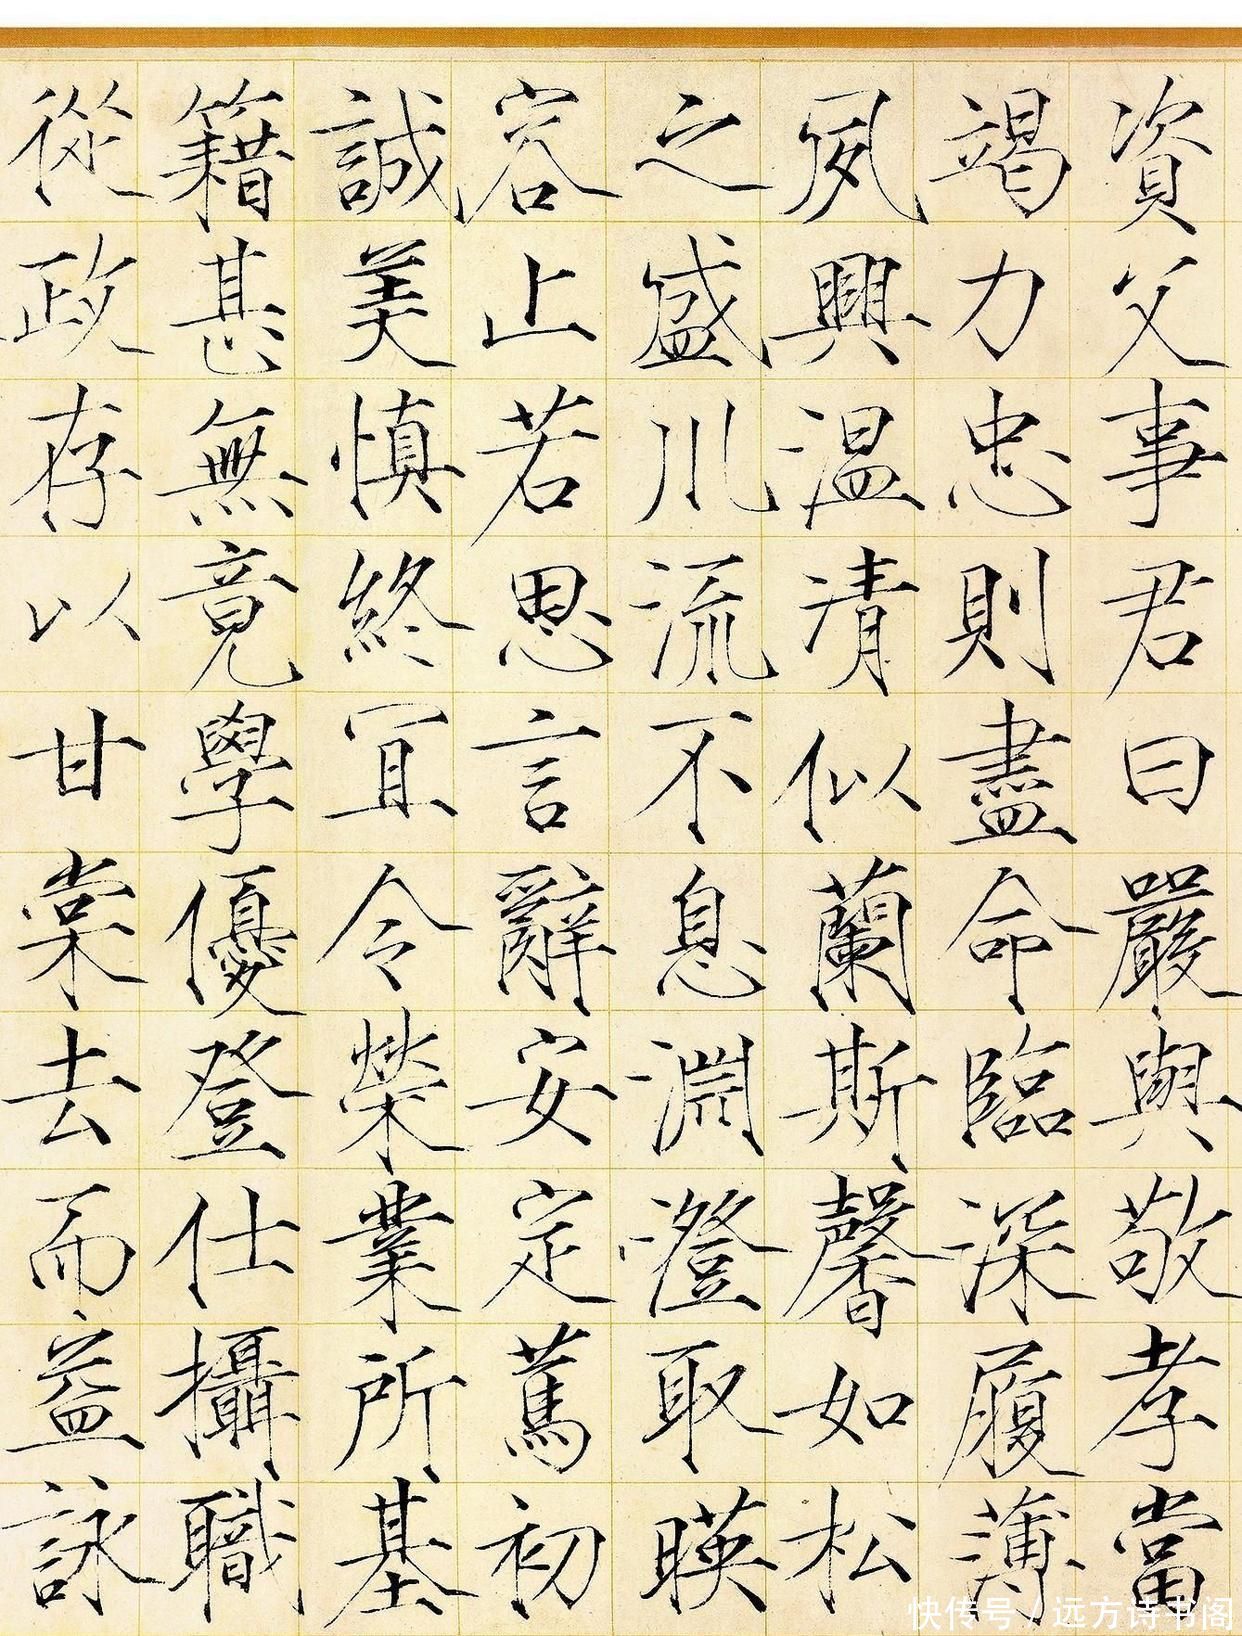 資父事君曰嚴與敬孝當
竭力忠則盡命臨深履薄
夙興温凊似蘭斯馨如松
之盛川流不息淵澄取暎
容止若思言辭安定篤初
誠美慎終宜令榮業所基
籍甚無竟學優登仕攝職
從政存以甘棠去而益詠
快传号/远方诗书阁